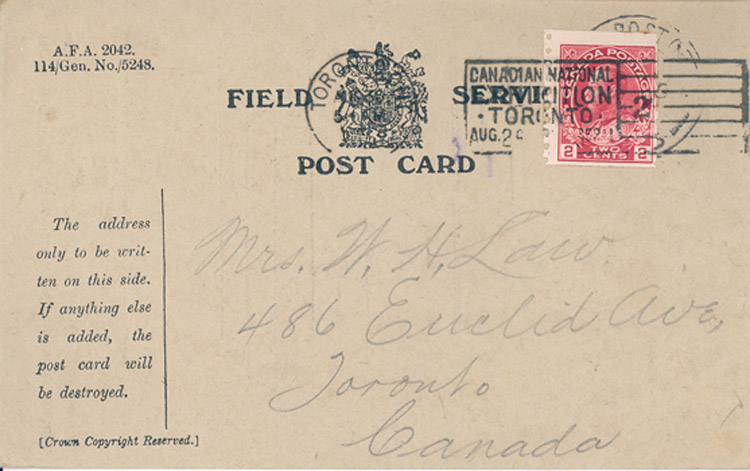 A.F.A. 2042.
114/Gen. No./5248.
FIELD SERVICE
POST CARD
TORONTO
CANADIAN NATIONAL
EXHIBITION
TORONTO
AUG. 28
CANADA POSTAGE
2 TWO CENTS 2
The address
only to be writ-
ten on this side.
If anything else
is added, the
post card will
be destroyed.
[Crown Copyright Reserved.]
Mrs. W. H. Law.
486 Euclid Ave,
Toronto
Canada